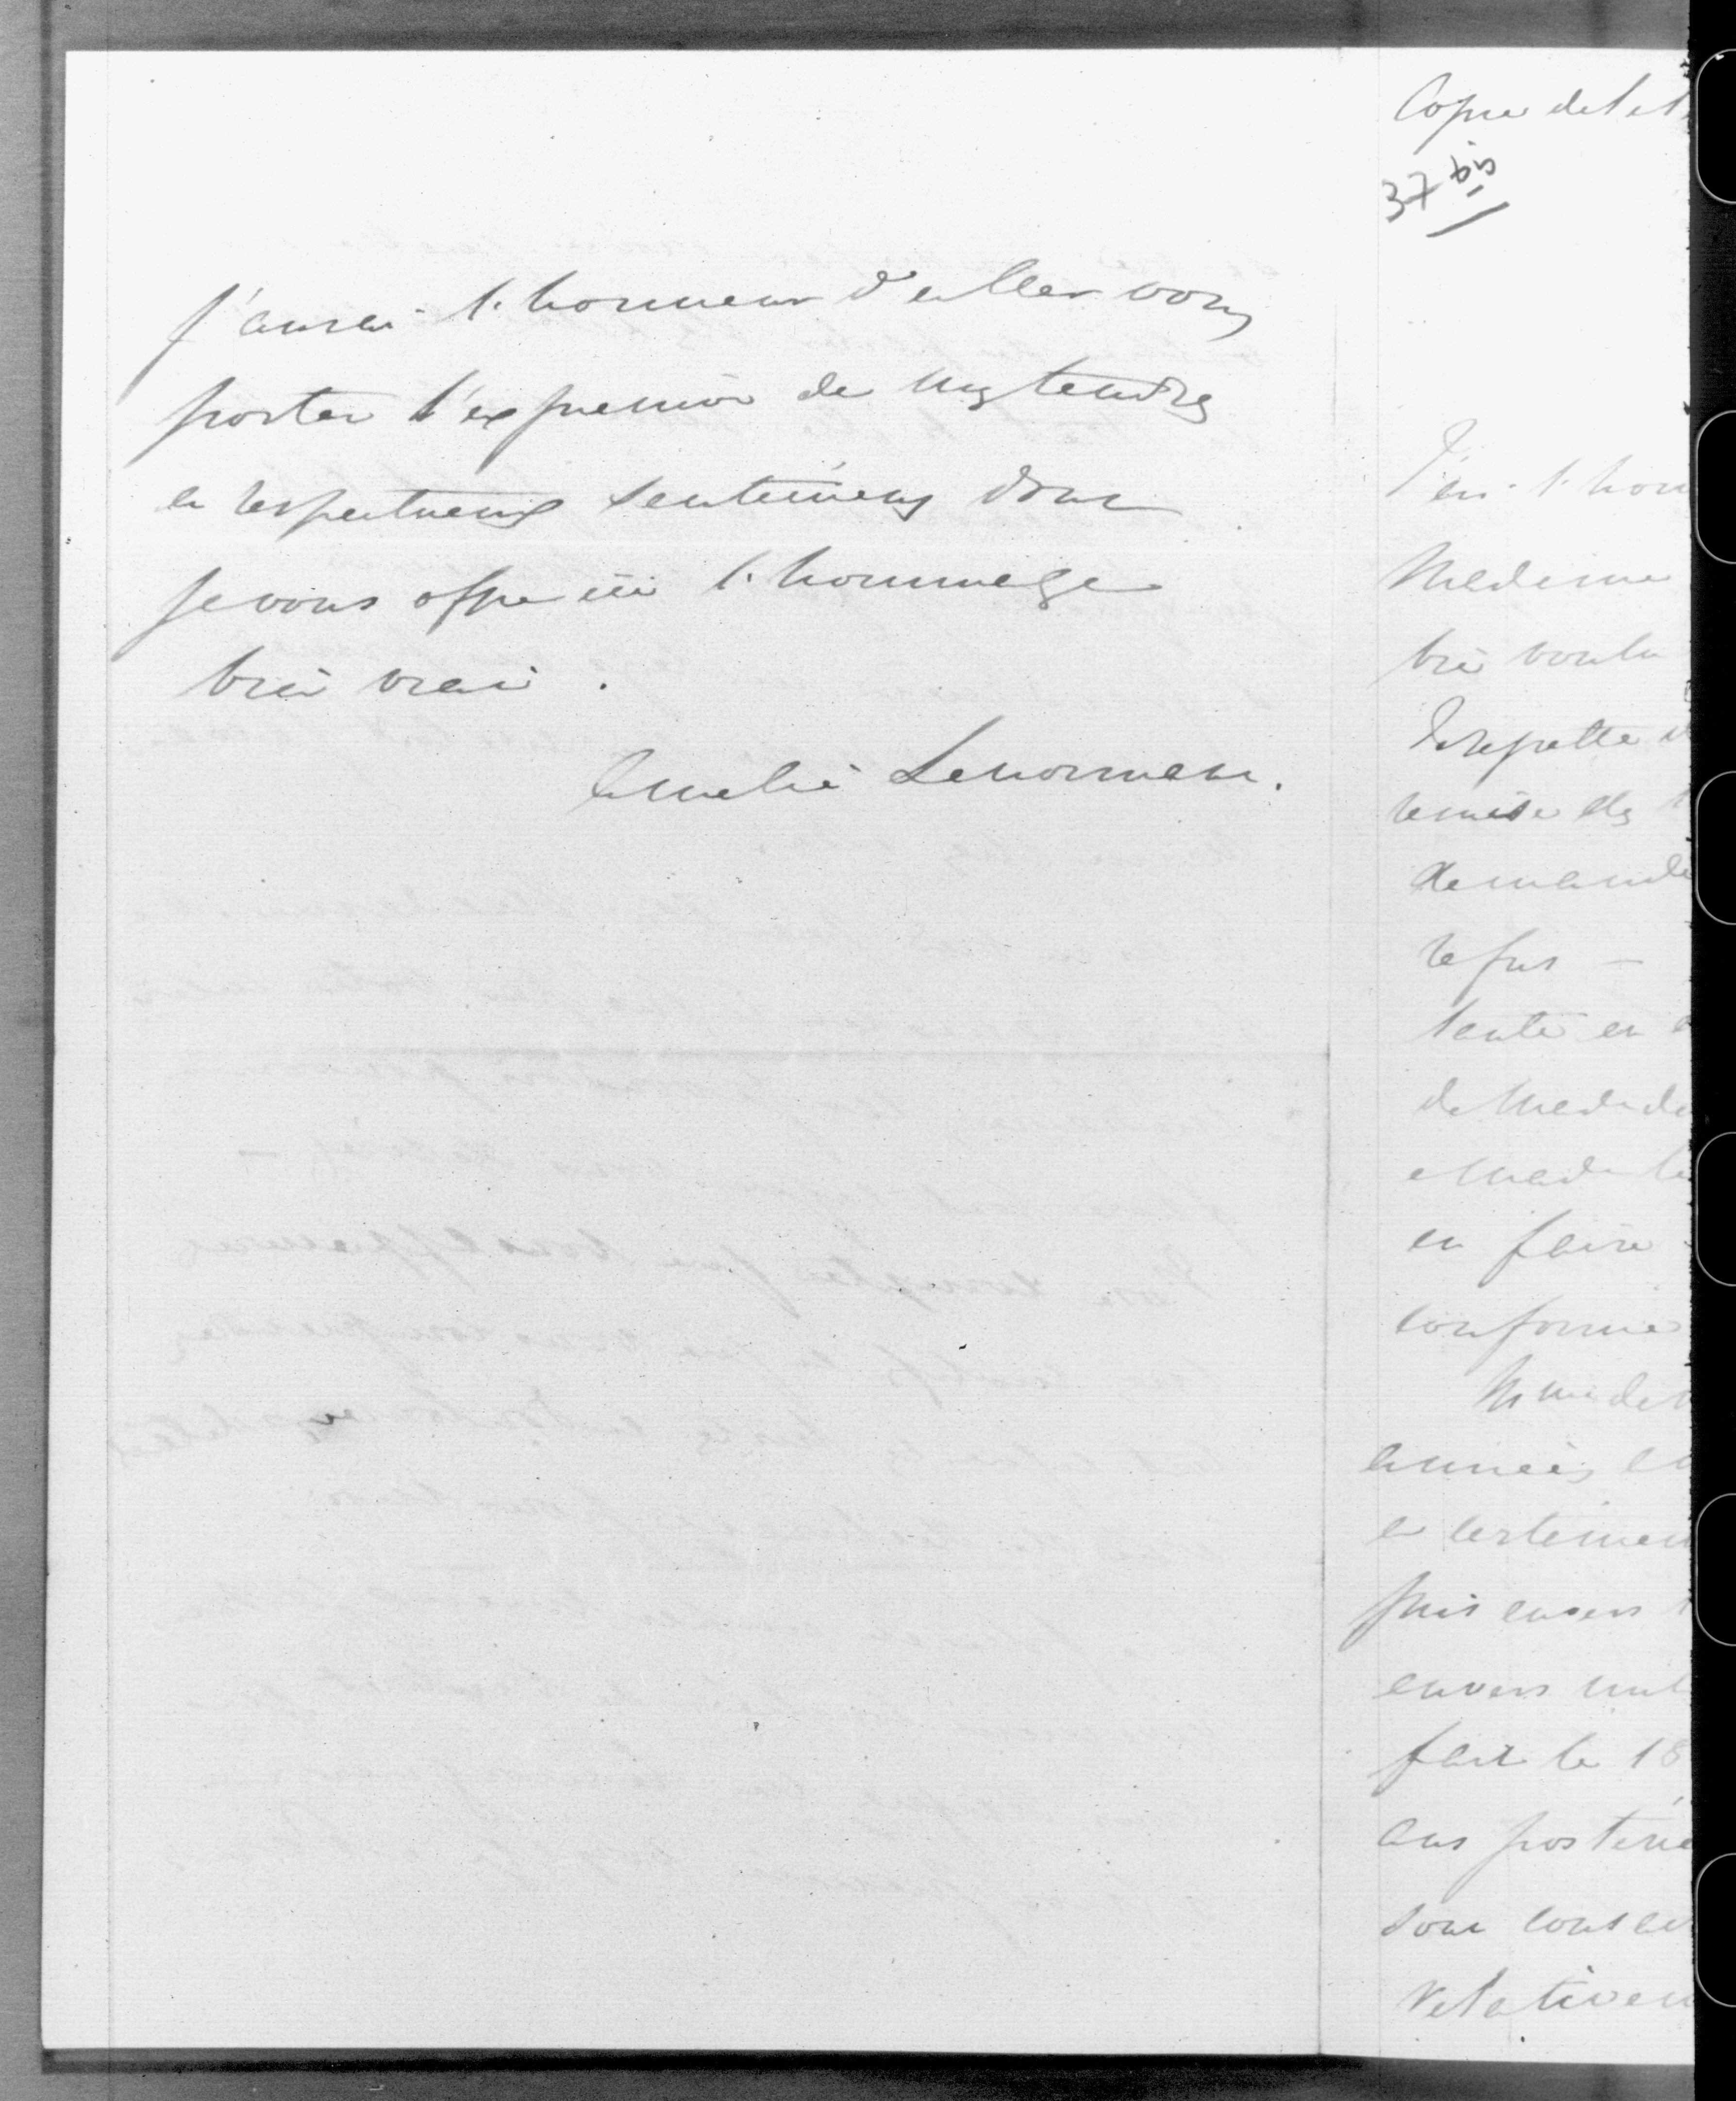 j'aurai l'honneur d'aller vous
porter l'expression de mes tendres
et respectueux sentimens dont
je vous offre ici l'hommage
bien vrai.
Amélie Lenormant.
Copie de
37 bis
J'ai l'hon
Madame
bien voulu
remise des
demande
refus —
tante en
de Made de
en faire
conforme
années
et certainem
puis envers
envers
fait le 18
ans postérie
sont
relativem